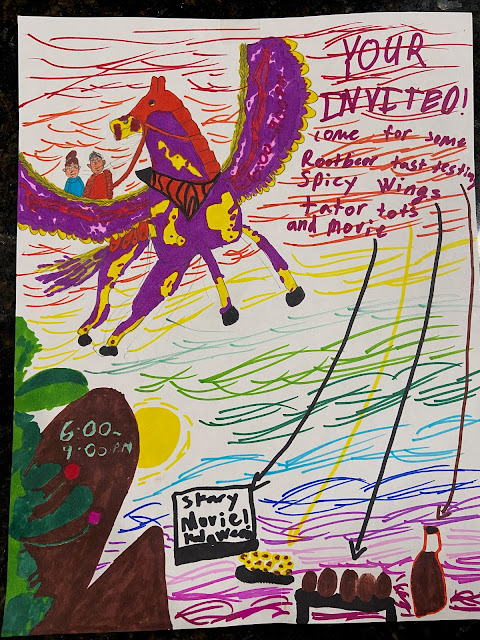 YOUR
INVITED!
come for some
Rootbeer tast testing
Spicy Wings
tator tots
and movie
6:00-
9:00 PM
Skary
Movie!